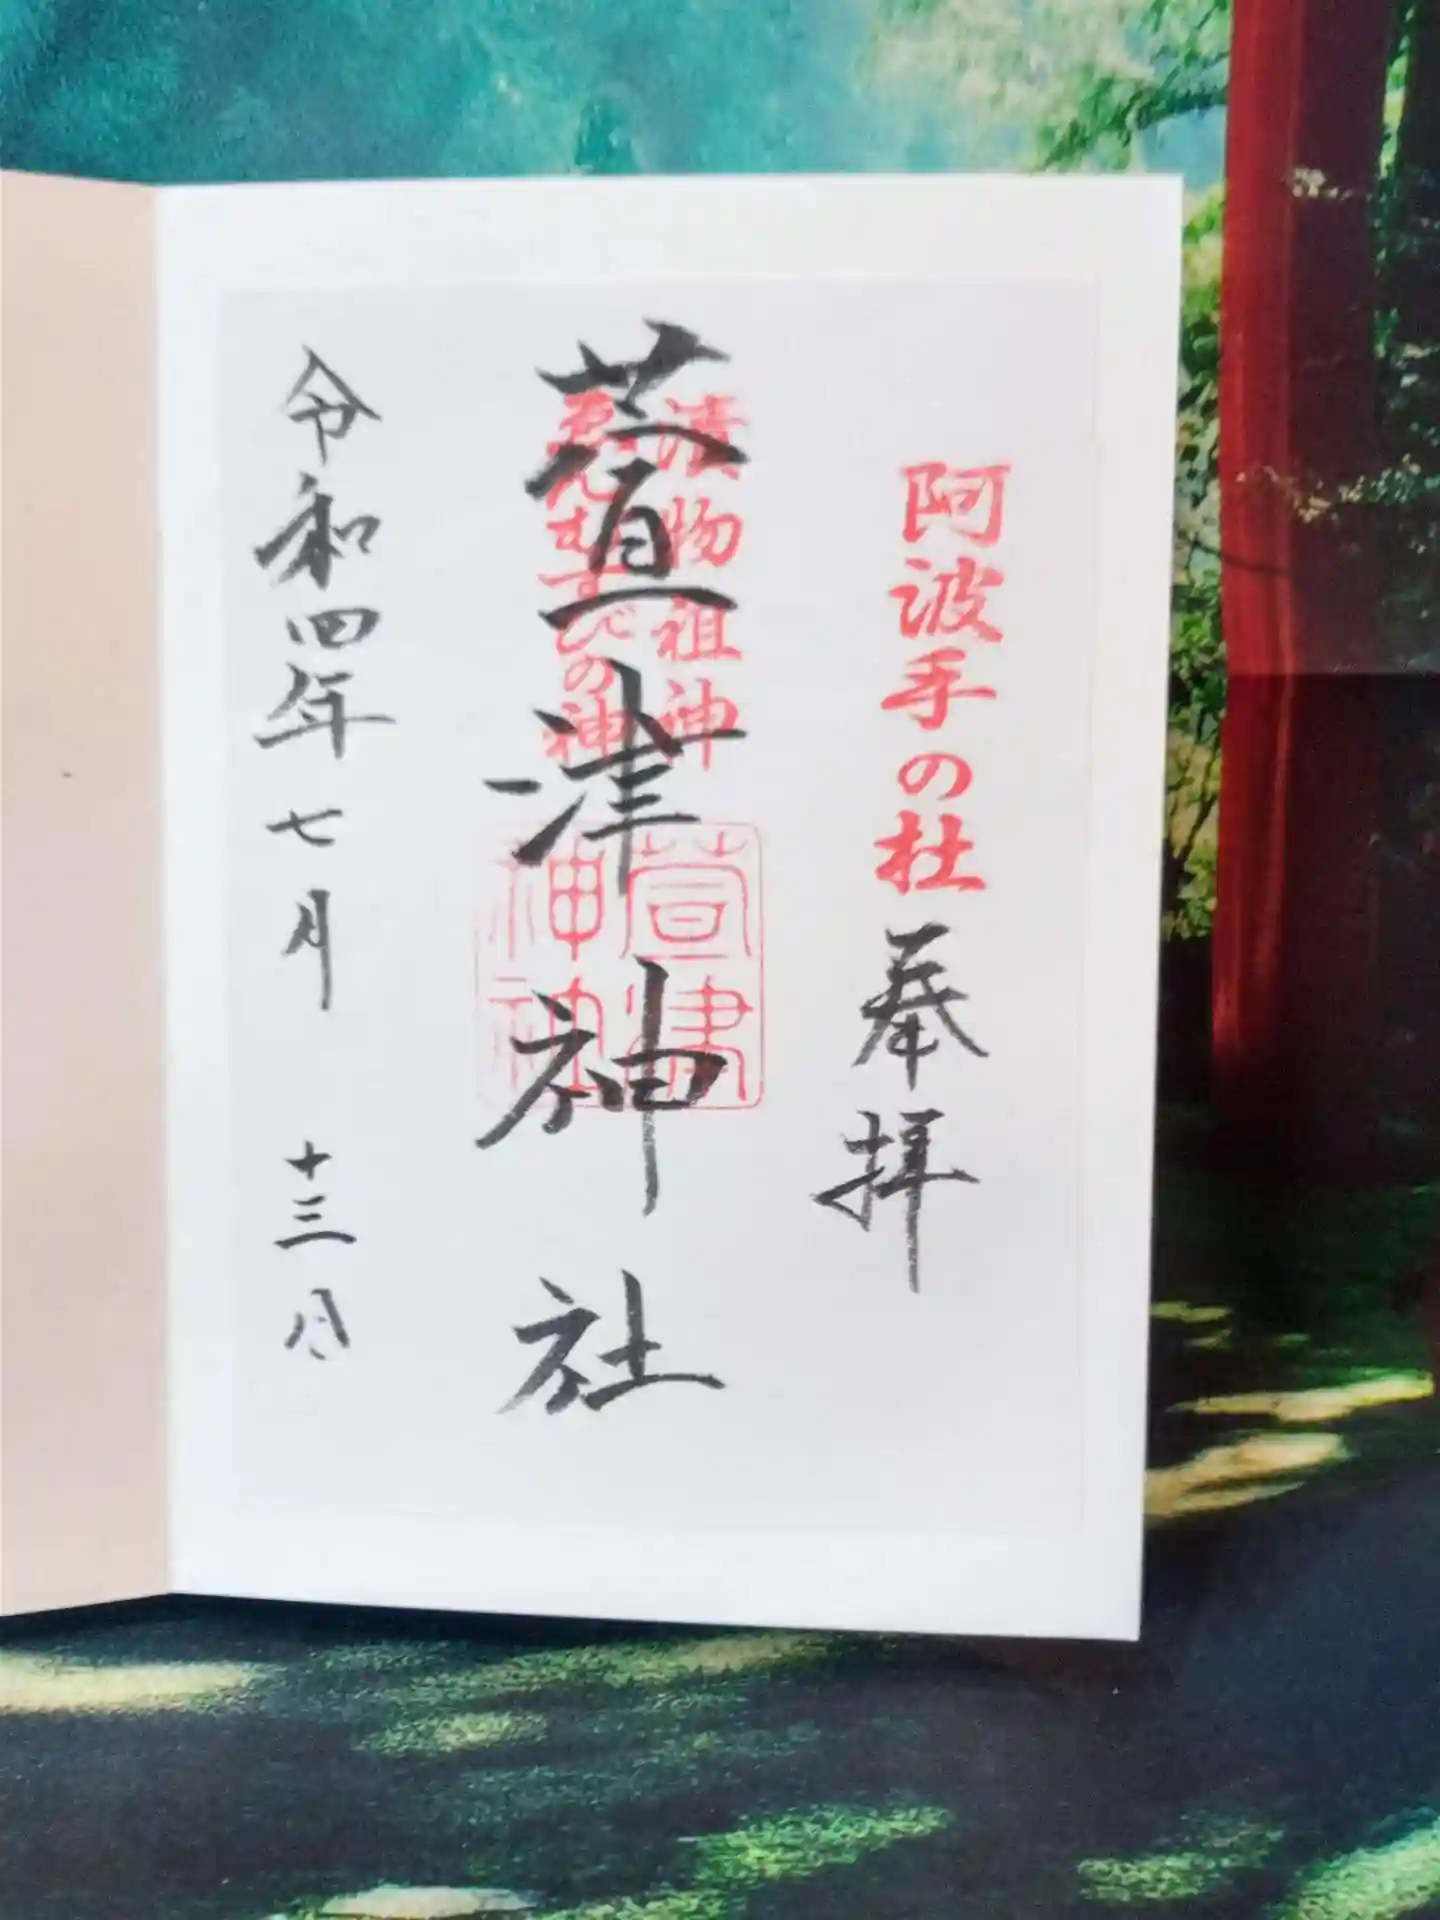 阿波手の杜
奉拝
漬物祖神
縁むすびの神
萱津神社
萱津神社
令和四年七月十三日